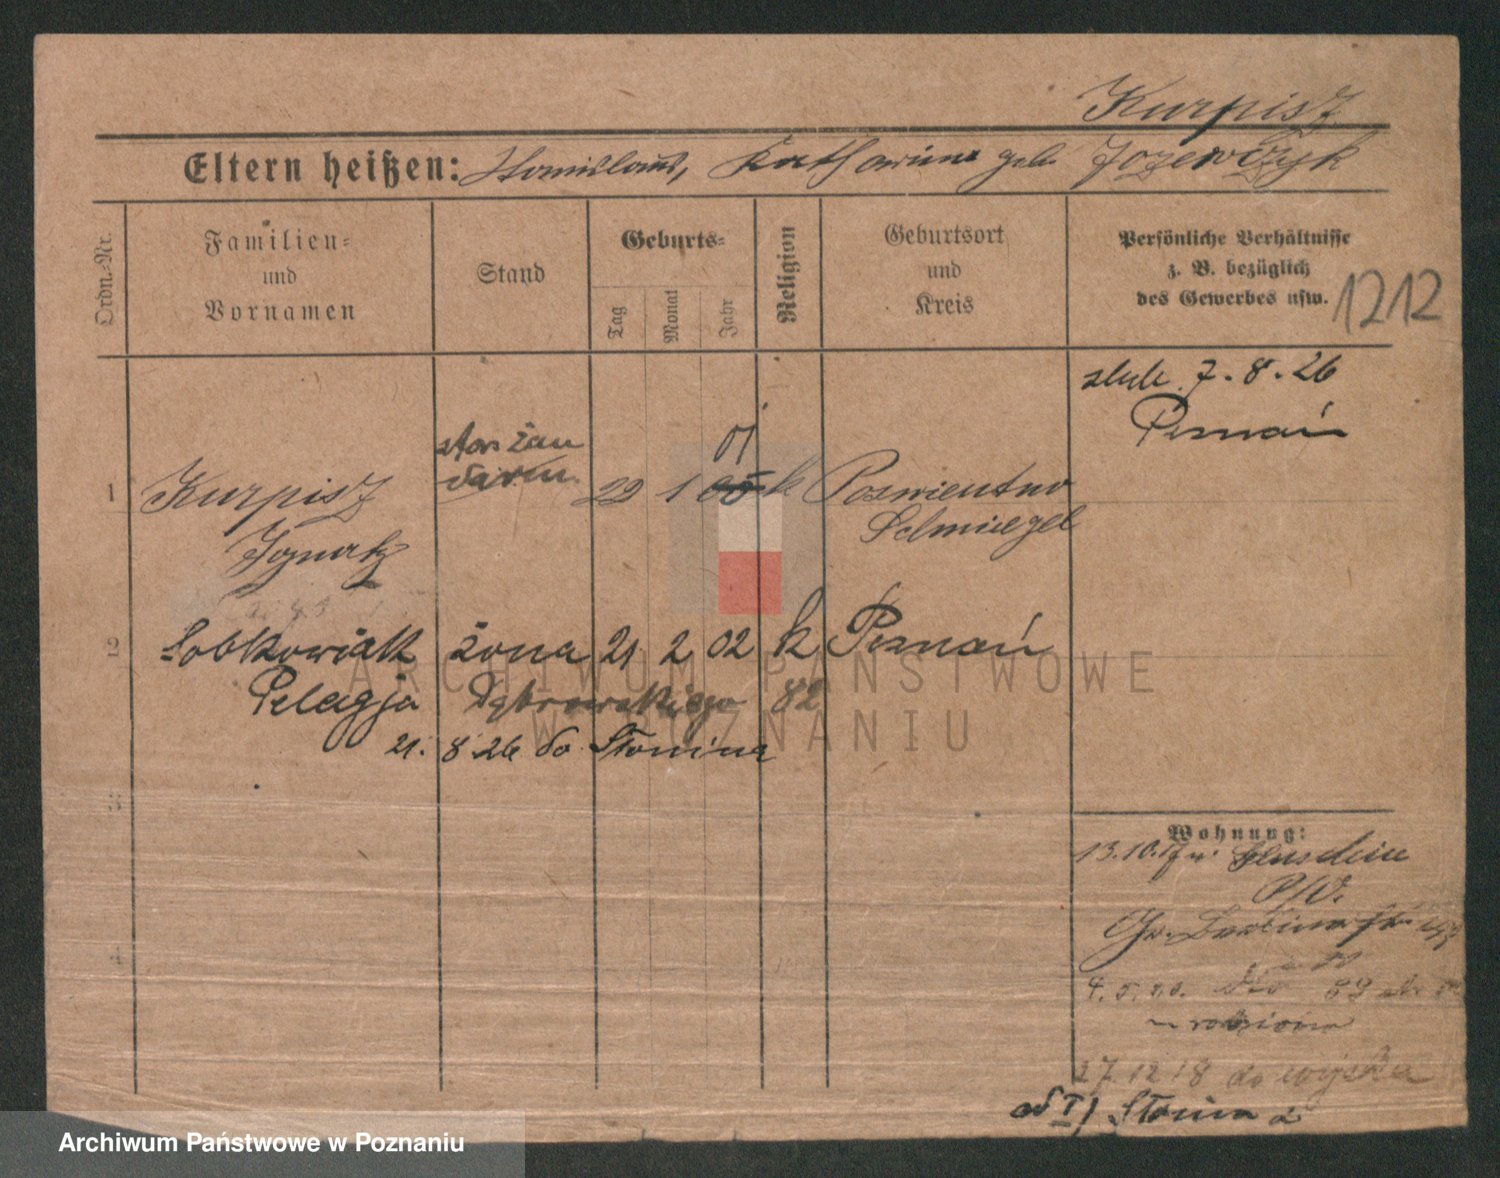 Kurpisz
Eltern heißen: Stanislaus, Katharina geb. Jozewczyk
Ordn.-Nr.
Familien-
und
Vornamen
Stand
Geburts-
Tag
Monat
Jahr
Religion
Geburtsort
und
Kreis
Persönliche Verhältnisse
z. B. bezüglich
des Gewerbes usw.
1212
ślub 7.8.26
Poznań
01
1 Kurpisz 29 1 00 k Poswientno
Ignatz
Schmiegel
2 Sobkowiak żona 21 2 02 k Poznań
Pelagja Dąbrowskiego 82
21. 8 26 do Słonima
3
4
Wohnung:
13.10.
Gr. Berliner str.
4.5.20. 59
27.12 18 do wojska
od 1) Słonima 2
ARCHIWUM PAŃSTWOWE
W POZNANIU
Archiwum Państwowe w Poznaniu